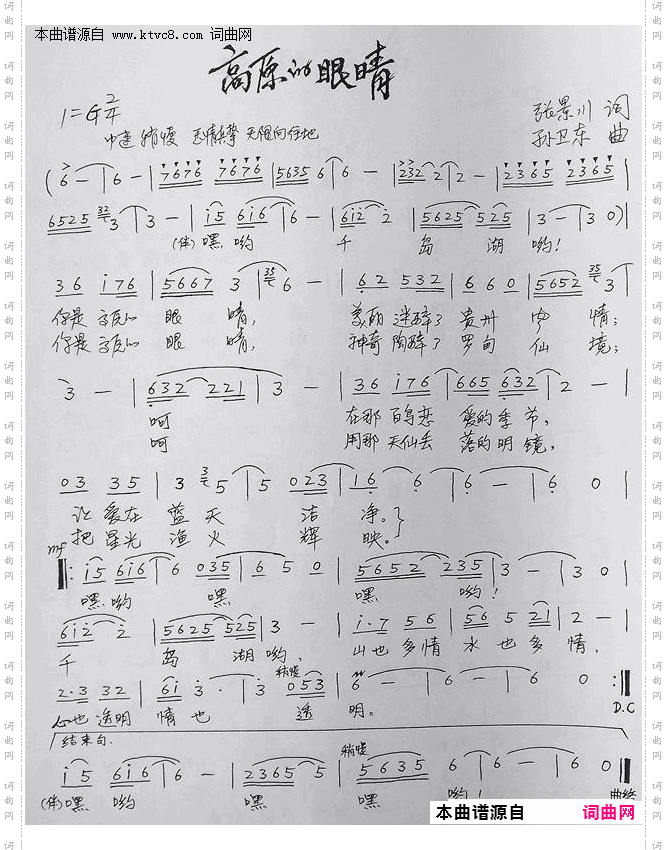 本曲谱源自 www.ktvc8.com 词曲网
高原的眼睛
1=G 2/4
张景川 词
孙卫东 曲
中速 稍慢
(6 - | 6 - | 7676 7676 | 5635 6 | 6 - | 232 2 | 2 - | 2365 2365 |
6525 3 | 3 - | i5 6i6 | 6 - | 6i2 2 | 5625 525 | 3 - | 3 0) |
(伴)嘿 哟 千 岛 湖 哟!
36 i76 | 5667 3 | 6 - | 62 532 | 660 | 5652 3 |
你是高原的 眼 睛, 美丽 迷醉了 贵州 风 情;
你是高原的 眼 睛, 神奇 陶醉了 罗甸 仙 境;
3 - | 632 221 | 3 - | 36 i76 | 665 632 | 2 - |
呵 在那 百鸟恋 爱的季 节,
呵 用那 天仙丢 落的明 镜,
03 35 | 3 5 | 5 023 | 16 6 | 6 - | 6 0 |
让 爱在 蓝 天 洁 净。
把 星光 渔 火 辉 映。
mf
i5 6i6 | 6 035 | 6 5 0 | 5652 235 | 3 - | 3 0 |
嘿 哟 嘿 嘿 哟!
6i2 2 | 5625 525 | 3 - | i·7 56 | 56 5 21 | 2 - |
千 岛 湖 哟, 山也 多情 水 也 多 情,
稍慢
2·3 32 | 6i 3· | 3 053 | 6 - | 6 - | 6 0 :|
心也 透明 情 也 透 明。 D.C
结束句.
稍慢
i5 6i6 | 6 - | 2365 5 | 5635 6 | 6 - | 6 0 ||
(伴)嘿 哟 嘿 嘿 哟! 曲终
本曲谱源自 词曲网